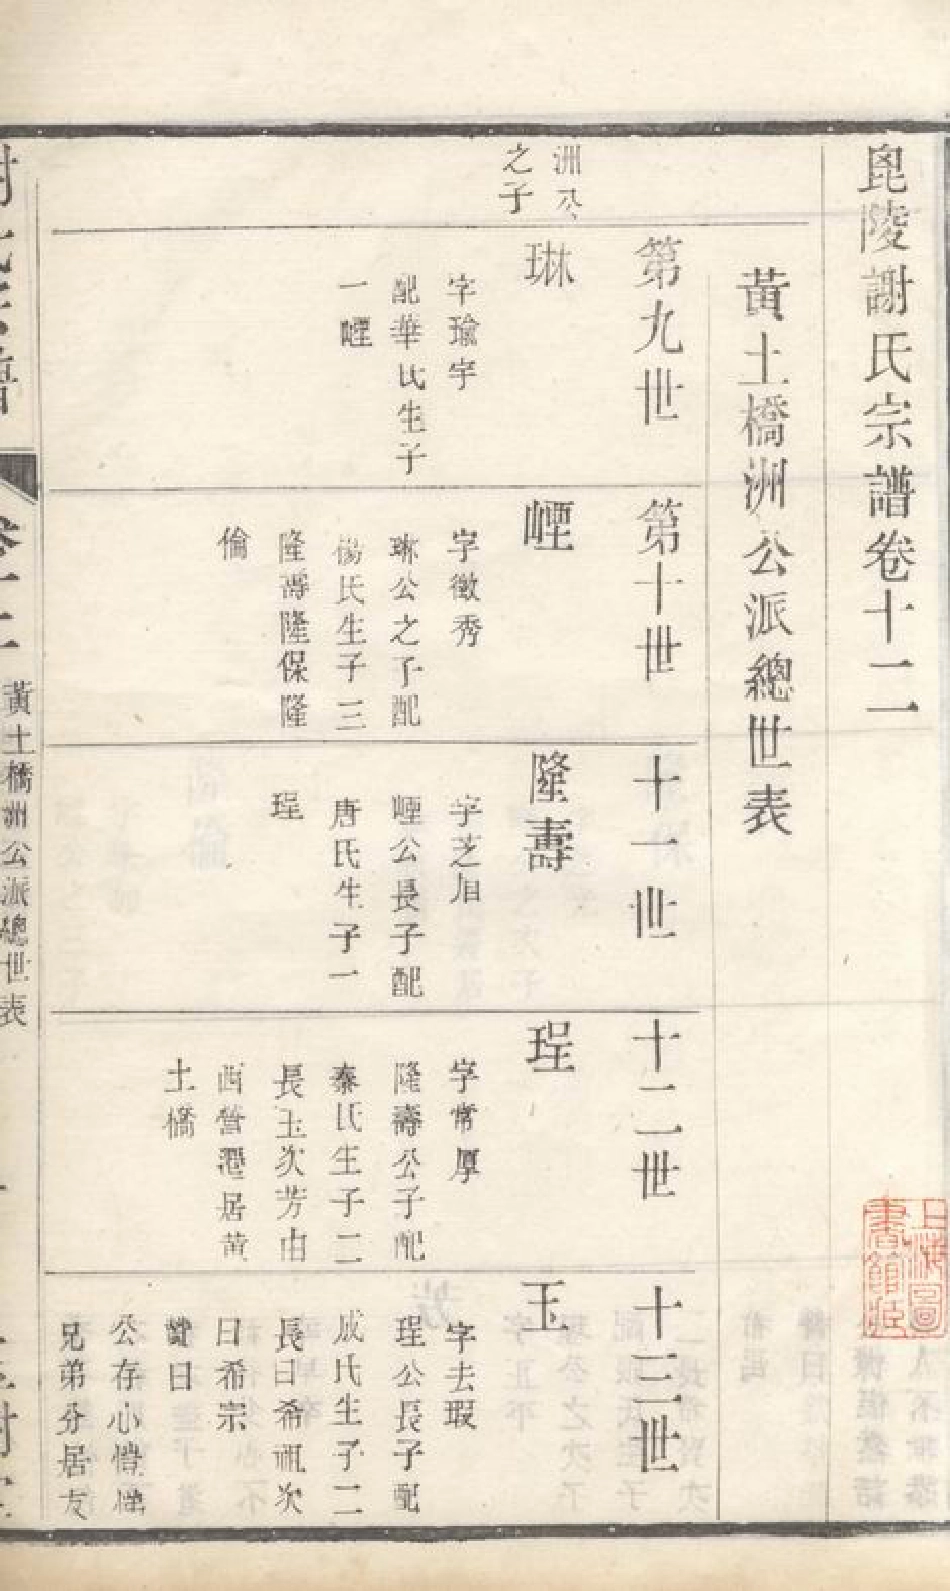 毘陵謝氏宗譜卷十二
黃土橋洲公派總世表
洲公
之子
第九世
琳
字瑜宇
配華氏生子
一㟴
第十世
㟴
字徵秀
琳公之子配
楊氏生子三
隆壽隆保隆
倫
十一世
隆壽
字芝眉
㟴公長子配
唐氏生子一
珵
十二世
珵
字常厚
隆壽公子配
秦氏生子二
長玉次芳由
西營遷居黃
土橋
十三世
玉
字去瑕
珵公長子配
成氏生子二
長曰希祖次
曰希宗
贊曰
公存心愷悌
兄弟分居友
黃土橋洲公派總世表
上海圖
書館藏